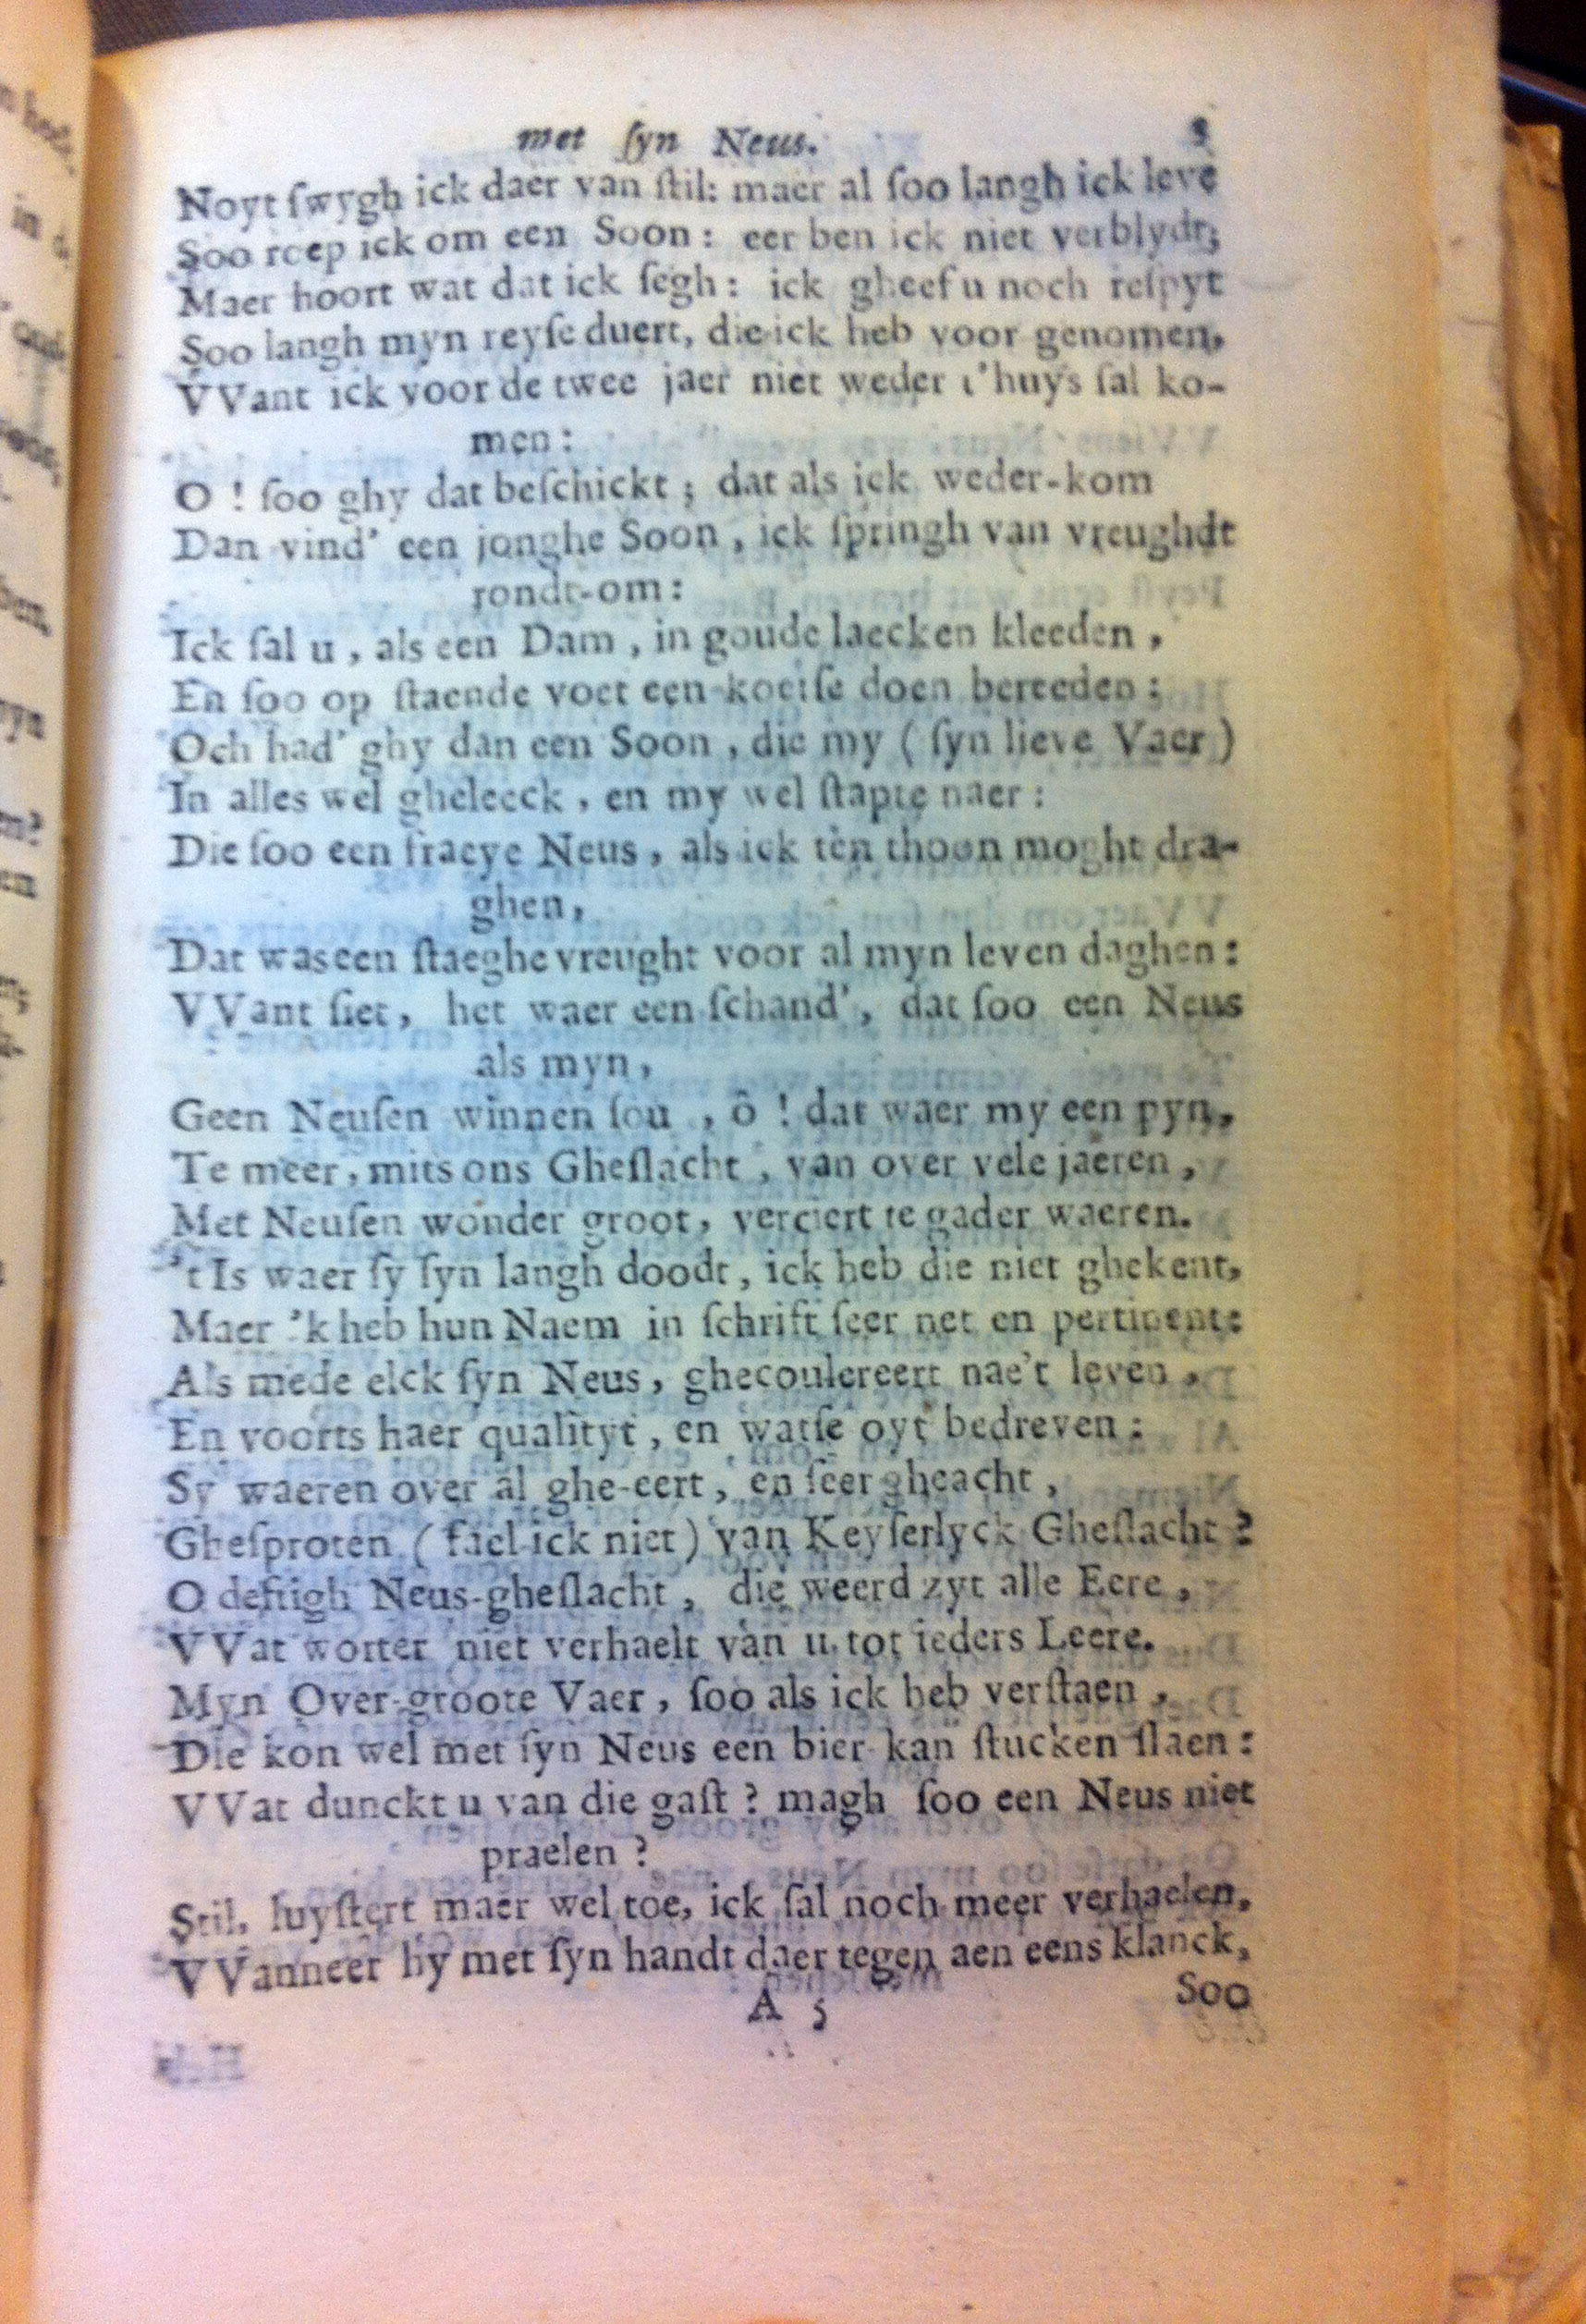 met ſyn Neus. 9
Noyt ſwygh ick daer van ſtil: maer al ſoo langh ick leve
Soo roep ick om een Soon: eer ben ick niet verblydt;
Maer hoort wat dat ick ſegh: ick gheef u noch reſpyt
Soo langh myn reyſe duert, die ick heb voor genomen,
VVant ick voor de twee jaer niet weder t'huys ſal ko-
men:
O! ſoo ghy dat beſchickt; dat als ick weder-kom
Dan vind' een jonghe Soon, ick ſpringh van vreughdt
rondt-om:
Ick ſal u, als een Dam, in goude laecken kleeden,
En ſoo op ſtaende voet een koetſe doen bereeden:
Och had' ghy dan een Soon, die my (ſyn lieve Vaer)
In alles wel gheleeck, en my wel ſtapte naer:
Die ſoo een fraeye Neus, als ick ten thoon moght dra-
ghen,
Dat was een ſtaeghe vreught voor al myn leven daghen:
VVant ſiet, het waer een ſchand', dat ſoo een Neus
als myn,
Geen Neuſen winnen ſou, ô! dat waer my een pyn,
Te meer, mits ons Gheſlacht, van over vele jaeren,
Met Neuſen wonder groot, verciert te gader waeren.
't Is waer ſy ſyn langh doodt, ick heb die niet ghekent,
Maer 'k heb hun Naem in ſchrift ſeer net en pertinent:
Als mede elck ſyn Neus, ghecoulereert nae't leven,
En voorts haer qualityt, en watſe oyt bedreven:
Sy waeren over al ghe-eert, en ſeer gheacht,
Gheſproten (fael ick niet) van Keyſerlyck Gheſlacht?
O deftigh Neus-gheſlacht, die weerd zyt alle Eere,
VVat worter niet verhaelt van u tot ieders Leere.
Myn Over-groote Vaer, ſoo als ick heb verſtaen,
Die kon wel met ſyn Neus een bier kan ſtucken ſlaen:
VVat dunckt u van die gaſt? magh ſoo een Neus niet
praelen?
Stil, luyſtert maer wel toe, ick ſal noch meer verhaelen,
VVanneer hy met ſyn handt daer tegen aen eens klanck,
A 5 Soo